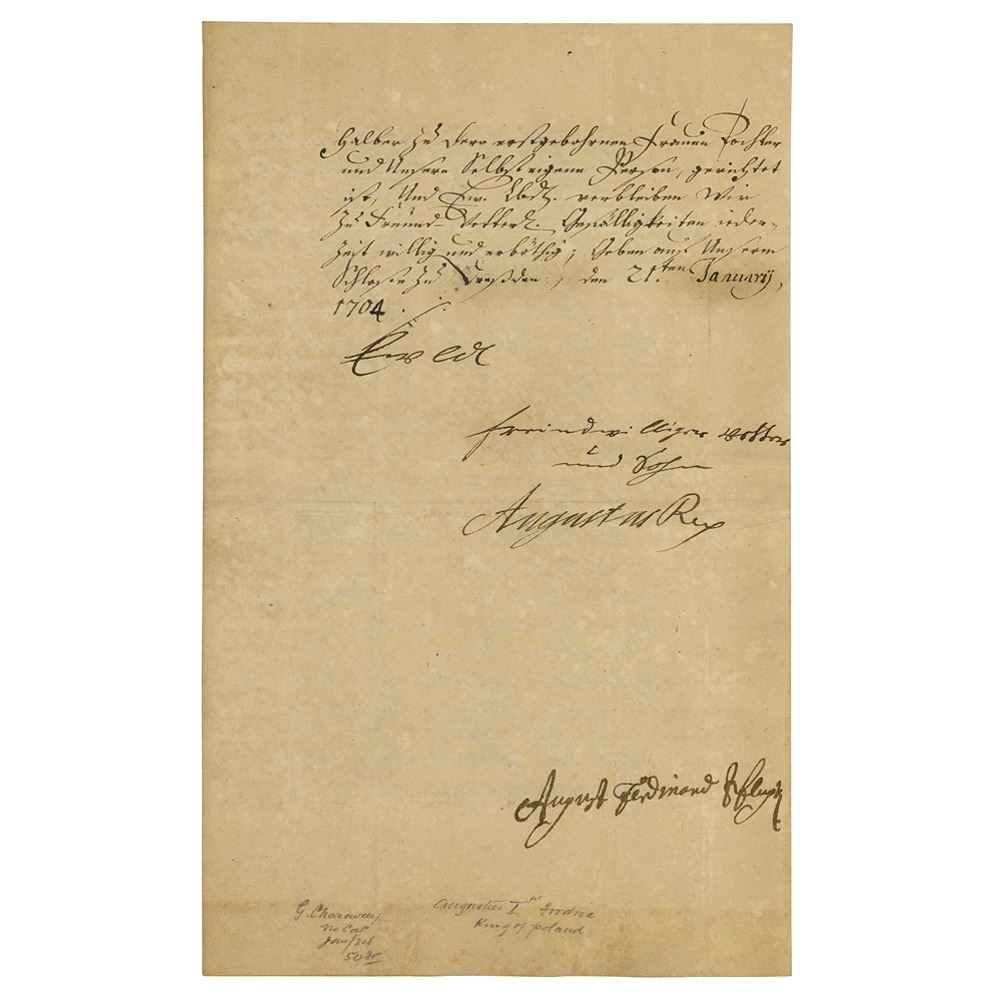 halber zu dero erstgebohrenen Frauen Tochter
und Unsere Selbst eigene Person, gerichtet
ist, Und Ew. Lbd. verbleiben Wir
zu Freünd-Vetterl. Gefälligkeiten ieder-
zeit willig und erböthig; Geben auf Unserm
Schloße zu Dreßden, den 21.ten January,
1704.
Ew Ld
freindwilliger vetter
und Sohn
Augustus Rex
August Ferdinand Pflugk
G. Charavay
no Cat
Jan/24
50 fr
Augustus I
King of Poland